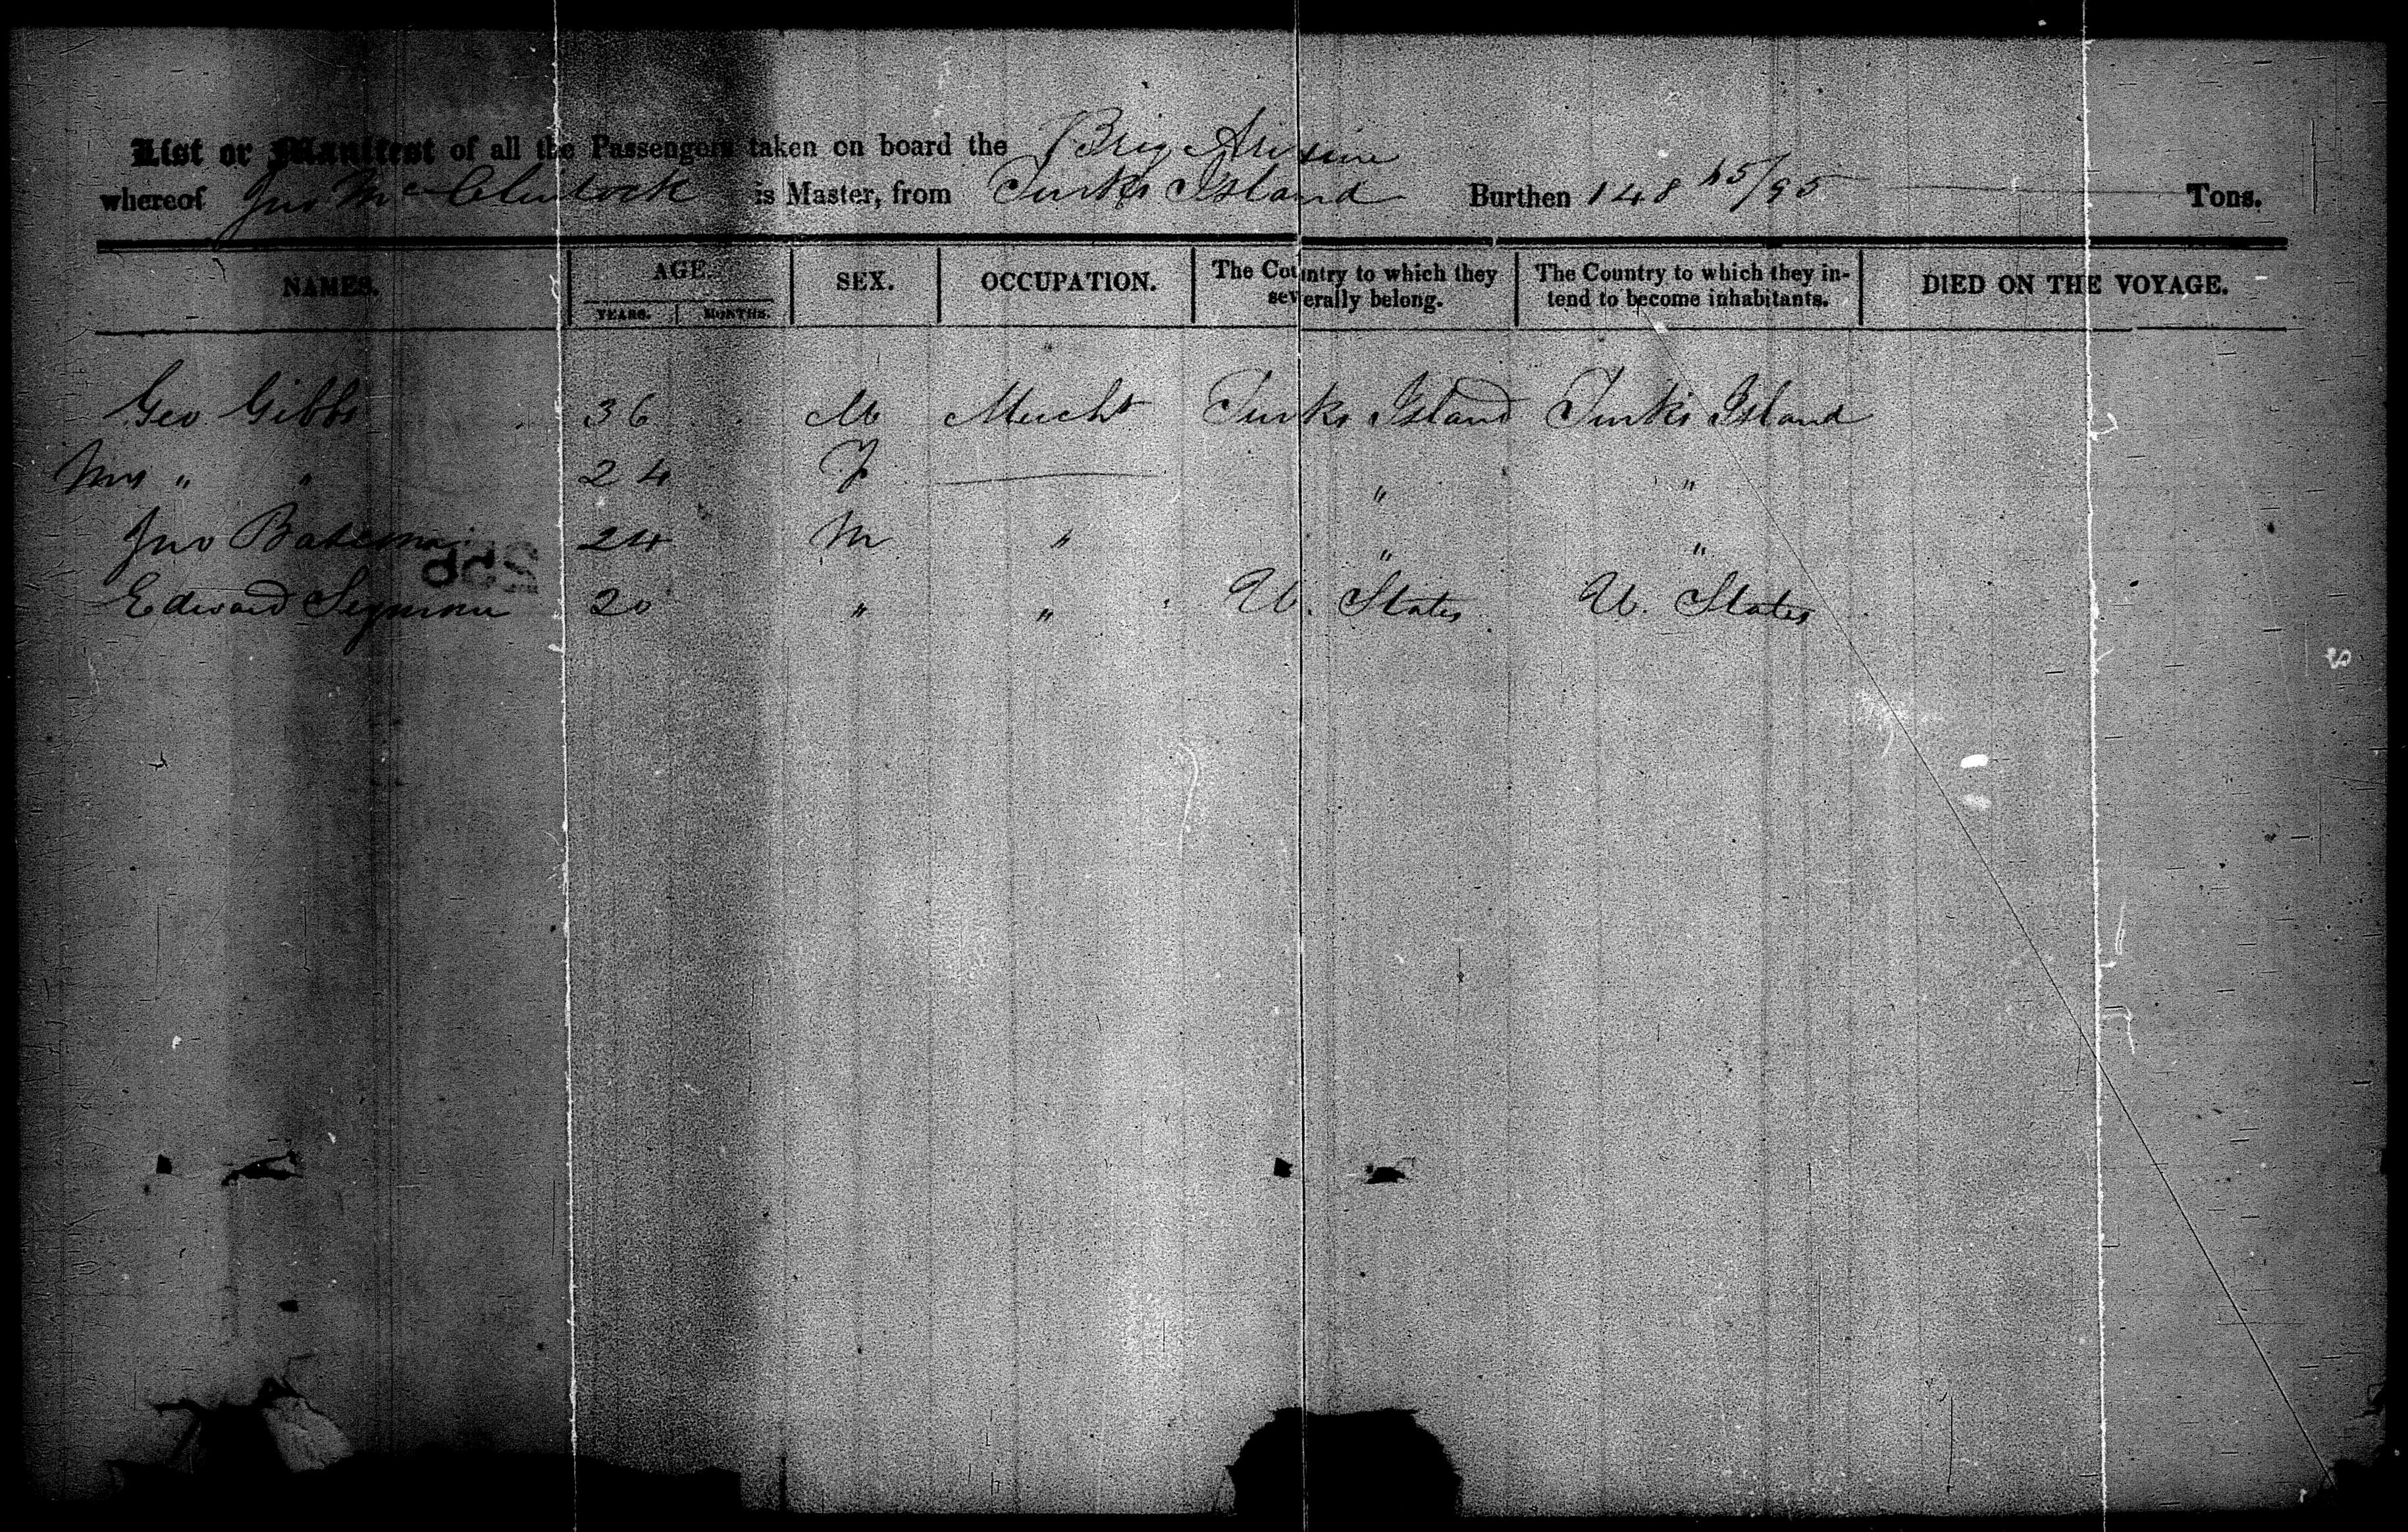 List or Manifest of all the Passengers taken on board the Brig
whereof Jno McClintock is Master, from Turks Island Burthen 148 /95 Tons.
NAMES. AGE. SEX. OCCUPATION. The Country to which they severally belong. The Country to which they intend to become inhabitants. DIED ON THE VOYAGE.
YEARS. MONTHS.
Geo Gibbs 36 M Mercht Turks Island Turks Island
Mrs " " 24 F " "
Jno Bateman 24 M " " "
Edward Seymour 20 " " U. States U. States